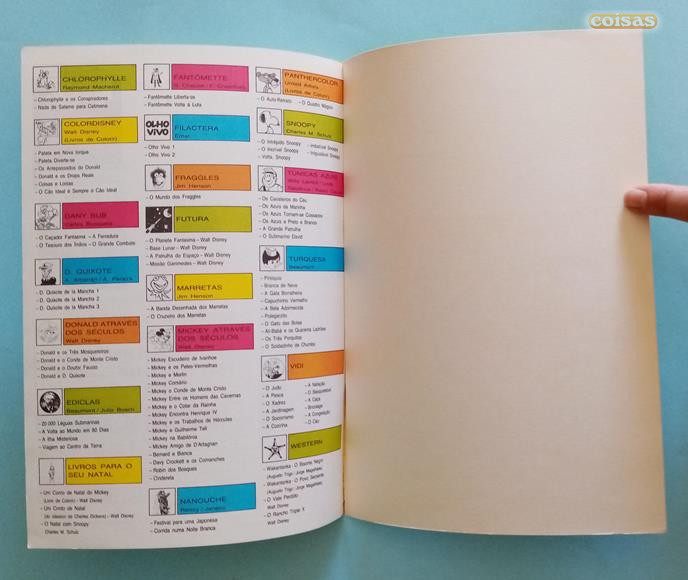 coisas
CHLOROPHYLLE
Raymond Macherot
– Chlorophylle e os Conspiradores
– Nada de Salame para Celimene
COLORDISNEY
Walt Disney
(Livros de Colorir)
– Pateta em Nova Iorque
– Pateta Diverte-se
– Os Antepassados do Donald
– Donald e os Drops Reais
– Coisas e Loisas
– O Cão Ideal é Sempre o Cão Ideal
DANY BUB
Carlos
– O Caçador Fantasma – A Ferradura
– O Tesouro dos Índios – O Grande Combate
D. QUIXOTE
– D. Quixote de la Mancha 1
– D. Quixote de la Mancha 2
– D. Quixote de la Mancha 3
DONALD ATRAVÉS
DOS SÉCULOS
Walt Disney
– Donald e os Três Mosqueteiros
– Donald e o Conde de Monte Cristo
– Donald e o Doutor Fausto
– Donald e D. Quixote
EDICLAS
Beaumont / Julio Bosch
– 20 000 Léguas Submarinas
– A Volta ao Mundo em 80 Dias
– A Ilha Misteriosa
– Viagem ao Centro da Terra
LIVROS PARA O
SEU NATAL
– Um Conto de Natal do Mickey
(Livro de Colorir) – Walt Disney
– Um Conto de Natal
(do clássico de Charles Dickens) – Walt Disney
– O Natal com Snoopy
Charles M. Schulz
FANTÔMETTE
– Fantômette Liberta-os
– Fantômette Volta à Luta
OLHO
VIVO
FILACTERA
– Olho Vivo 1
– Olho Vivo 2
FRAGGLES
Jim Henson
– O Mundo dos Fraggles
FUTURA
– O Planeta Fantasma – Walt Disney
– Base Lunar – Walt Disney
– A Patrulha do Espaço – Walt Disney
– Missão Ganimedes – Walt Disney
MARRETAS
Jim Henson
– A Banda Desenhada dos Marretas
– O Cruzeiro dos Marretas
MICKEY ATRAVÉS
DOS SÉCULOS
Walt Disney
– Mickey Escudeiro de Ivanhoe
– Mickey e os Peles-Vermelhas
– Mickey e Merlin
– Mickey Corsário
– Mickey o Conde de Monte Cristo
– Mickey Entre os Homens das Cavernas
– Mickey e o Colar da Rainha
– Mickey Encontra Henrique IV
– Mickey e os Trabalhos de Hércules
– Mickey e Guilherme Tell
– Mickey na Babilónia
– Mickey Amigo de D'Artagnan
– Bernard e Bianca
– Davy Crockett e os Comanches
– Robin dos Bosques
– Cinderela
NANOUCHE
– Festival para uma Japonesa
– Corrida numa Noite Branca
PANTHERCOLOR
United Artists
(Livros de Colorir)
– O Auto-Retrato – O Quadro Mágico
SNOOPY
Charles M. Schulz
– O Intrépido Snoopy – Imbatível Snoopy
– O Incrível Snoopy – Inigualável Snoopy
– Volta, Snoopy
TÚNICAS AZUIS
– Os Cavaleiros do Céu
– Os Azuis da Marinha
– Os Azuis Tornam-se Cossacos
– Os Azuis a Preto e Branco
– A Grande Patrulha
– O Submarino David
TURQUESA
Beaumont
– Pinóquio
– Branca de Neve
– A Gata Borralheira
– Capuchinho Vermelho
– A Bela Adormecida
– Polegarzito
– O Gato das Botas
– Ali-Babá e os Quarenta Ladrões
– Os Três Porquitos
– O Soldadinho de Chumbo
VIDI
– O Judo – A Natação
– A Pesca – O Basquetebol
– O Xadrez – A Caça
– A Jardinagem – Bricolage
– O Socorrismo – A Congelação
– A Cozinha – O Cão
WESTERN
– Wakantanka - O Bisonte Negro
(Augusto Trigo / Jorge Magalhães)
– Wakantanka - O Povo Serpente
(Augusto Trigo / Jorge Magalhães)
– O Vale Perdido
Walt Disney
– O Rancho Triple X
Walt Disney